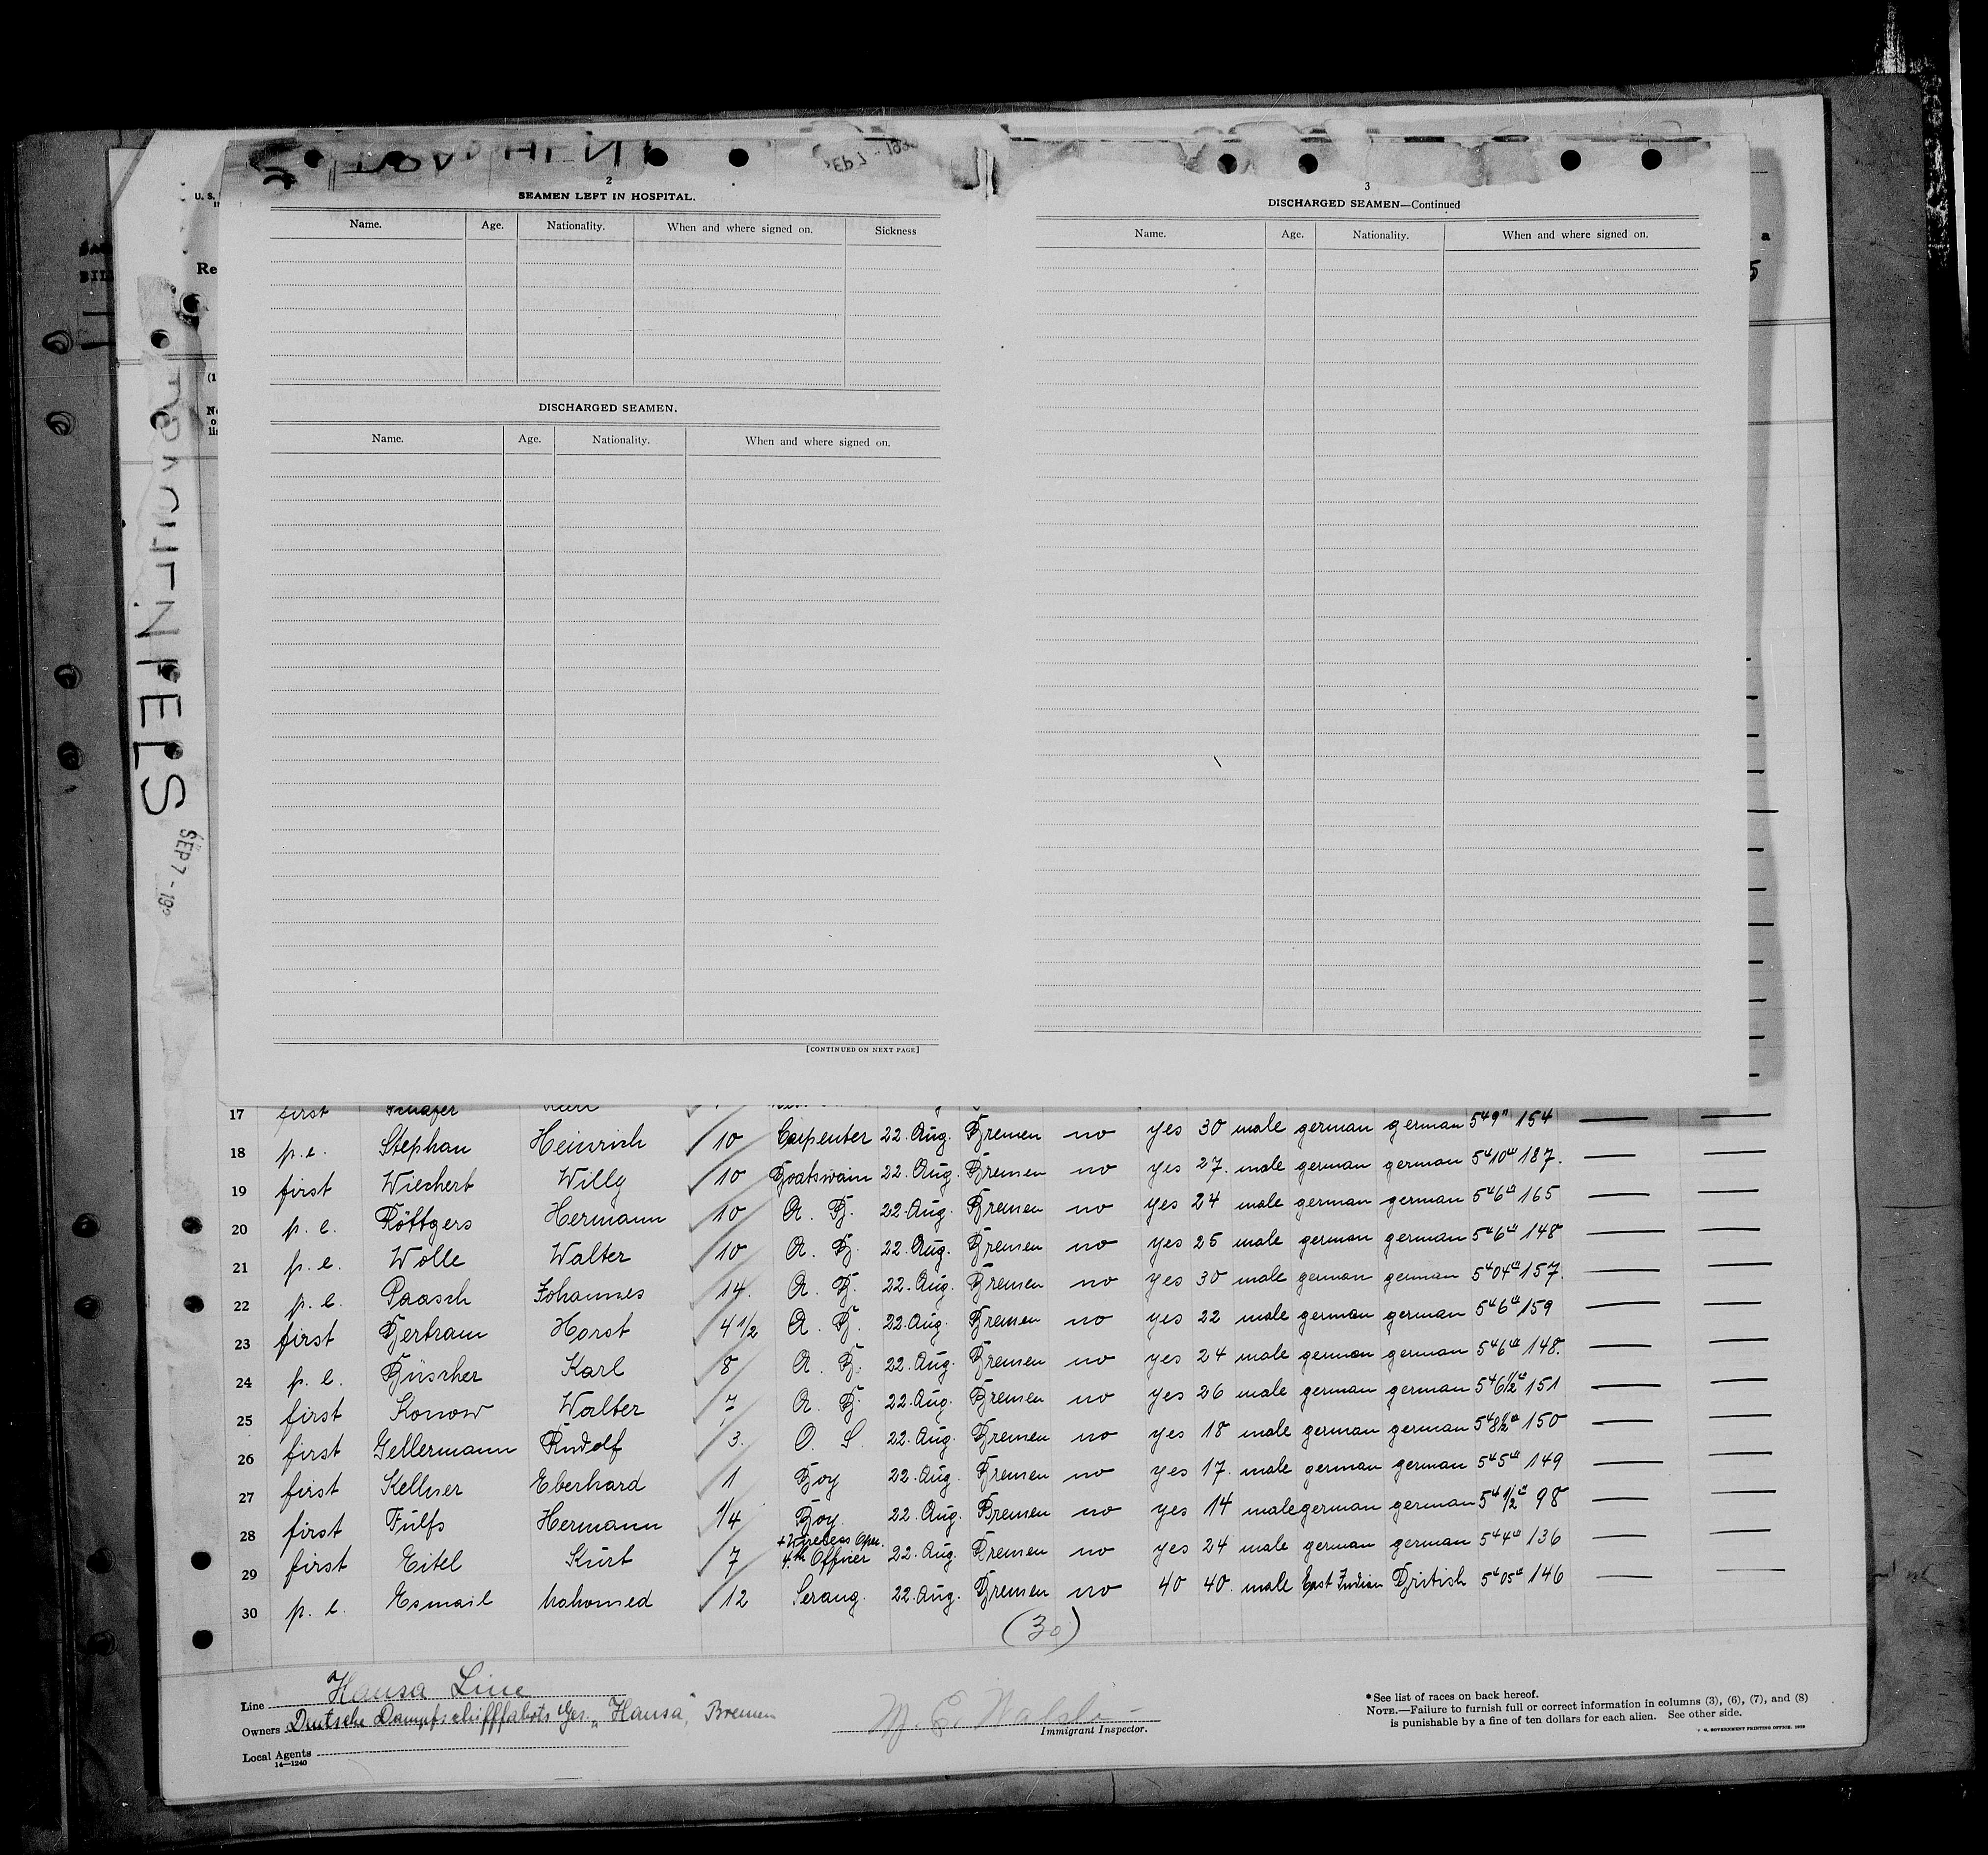 2
SEAMEN LEFT IN HOSPITAL.
Name. Age. Nationality. When and where signed on. Sickness
DISCHARGED SEAMEN.
Name. Age. Nationality. When and where signed on.
[CONTINUED ON NEXT PAGE]
3
DISCHARGED SEAMEN—Continued
Name. Age. Nationality. When and where signed on.
U. S.
Re
SEP 7 - 19
17 first
18 p.e. Stephan Heinrich 10 Carpenter 22. Aug. Bremen no yes 30 male german german 5'9" 154
19 first Wiechert Willy 10 Boatswain 22. Aug. Bremen no yes 27. male german german 5'10" 187.
20 p. e. Röttgers Hermann 10 A. B. 22. Aug. Bremen no yes 24 male german german 5'6" 165
21 p. e. Wolle Walter 10 A. B. 22. Aug. Bremen no yes 25 male german german 5'6" 148
22 p. e. Paasch Johannes 14. A. B. 22. Aug. Bremen no yes 30 male german german 5'04" 157.
23 first Bertram Horst 4 1/2 A. B. 22. Aug. Bremen no yes 22 male german german 5'6" 159
24 p. e. Büscher Karl 8 A. B. 22. Aug. Bremen no yes 24 male german german 5'6" 148.
25 first Konow Walter 7 A. B. 22. Aug. Bremen no yes 26 male german german 5'6 1/2" 151
26 first Gellermann Rudolf 3. O. S. 22. Aug. Bremen no yes 18 male german german 5'8 1/2" 150
27 first Kellner Eberhard 1 Boy 22. Aug. Bremen no yes 17. male german german 5'5" 149
28 first Fülfs Hermann 1/4 Boy 22. Aug. Bremen no yes 14 male german german 5' 1/2" 98
29 first Eitel Kurt 7 4th Officer 22. Aug. Bremen no yes 24 male german german 5'4" 136
30 p. e. Esmail Mahomed 12 Serang 22. Aug. Bremen no 40 40. male East Indian British 5'05" 146
(30)
Line Hansa Line
Owners Deutsche Dampfschifffahrts Ges. „Hansa", Bremen
Local Agents
14—1240
M. E. Walsh
Immigrant Inspector.
*See list of races on back hereof.
NOTE.—Failure to furnish full or correct information in columns (3), (6), (7), and (8)
is punishable by a fine of ten dollars for each alien. See other side.